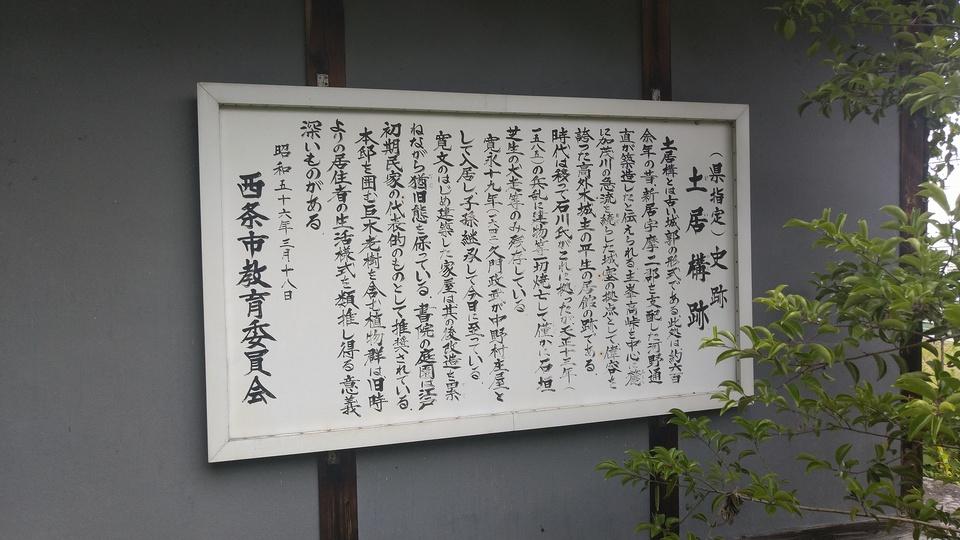 （県指定）史跡
土居構跡
土居構とは古い城郭の形式である此処は約六百
余年の昔新居宇摩二郡を支配した河野通
直が築造したと伝えられる土峯高峠を中心に
加茂川の急流を した城
誇った高外木城主の平生の居館の跡である
時代は移って石川氏がこれに拠ったが天正十三年（
一五八五）の兵乱に建物等一切焼亡して僅かに石垣
芝生の大走等のみ残存している
寛永十九年（一六四二）久門政武が中野村庄屋と
して入居し子孫継承して今日に至っている
寛文のはじめ建築した家屋は其の後改造を累
ねながら猶旧態を保っている 書院の庭園は江戸
初期民家の代表的のものとして推奨されている
本邸を囲む巨木老樹を含む植物群は旧時
よりの居住者の生活様式を類推し得る意義
深いものがある
昭和五十六年三月十八日
西条市教育委員会